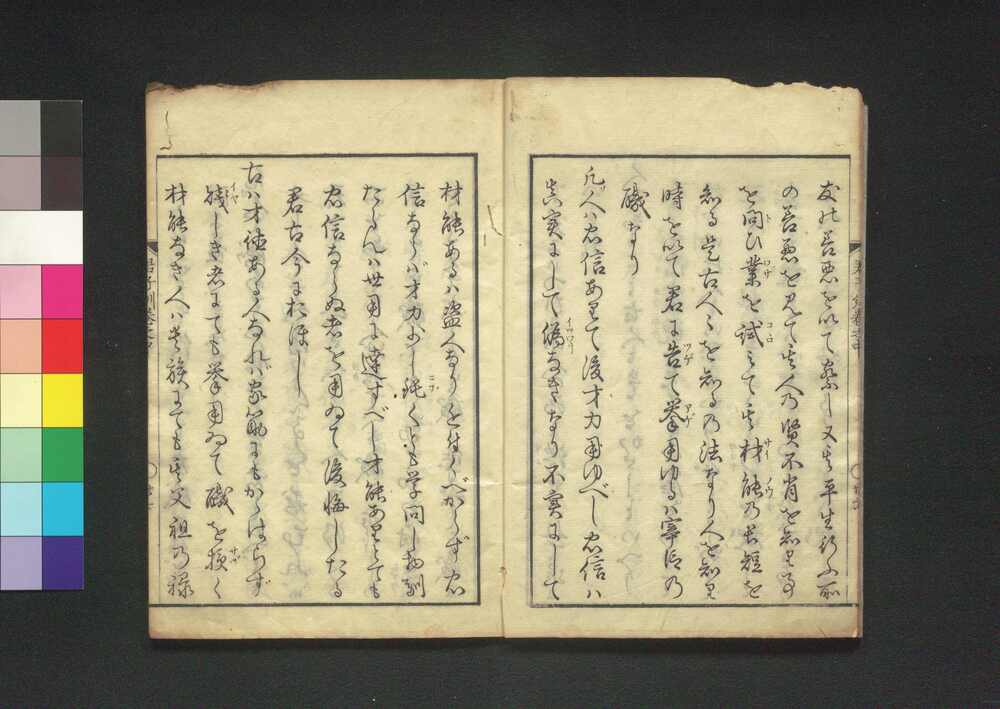 友の善悪を以て察し又其平生行ふ所
の善悪を見て其人乃賢不肖を知り事
を問ひ業を試ミて其材能乃長短を
知る是古人之を知る乃法なり人を知り
時を以て君に告て挙用ゆるハ宰臣乃
職なり
凡人ハ忠信ありて後才力用ゆべし忠信ハ
真実にして偽なきなり不実にして
材能あるハ盗人なり近付くべからず忠
信ならバ才力少し鈍くとも学問し
たらんハ世用に達すべし才能ありとても
忠信ならぬ者を用ゐて後悔したる
君古今におほし
古ハ才徳ある人なれバ家筋にもかかはらず
賤しき者にても挙用ゐて職を授く
材能なき人ハ貴族にても其父祖乃禄